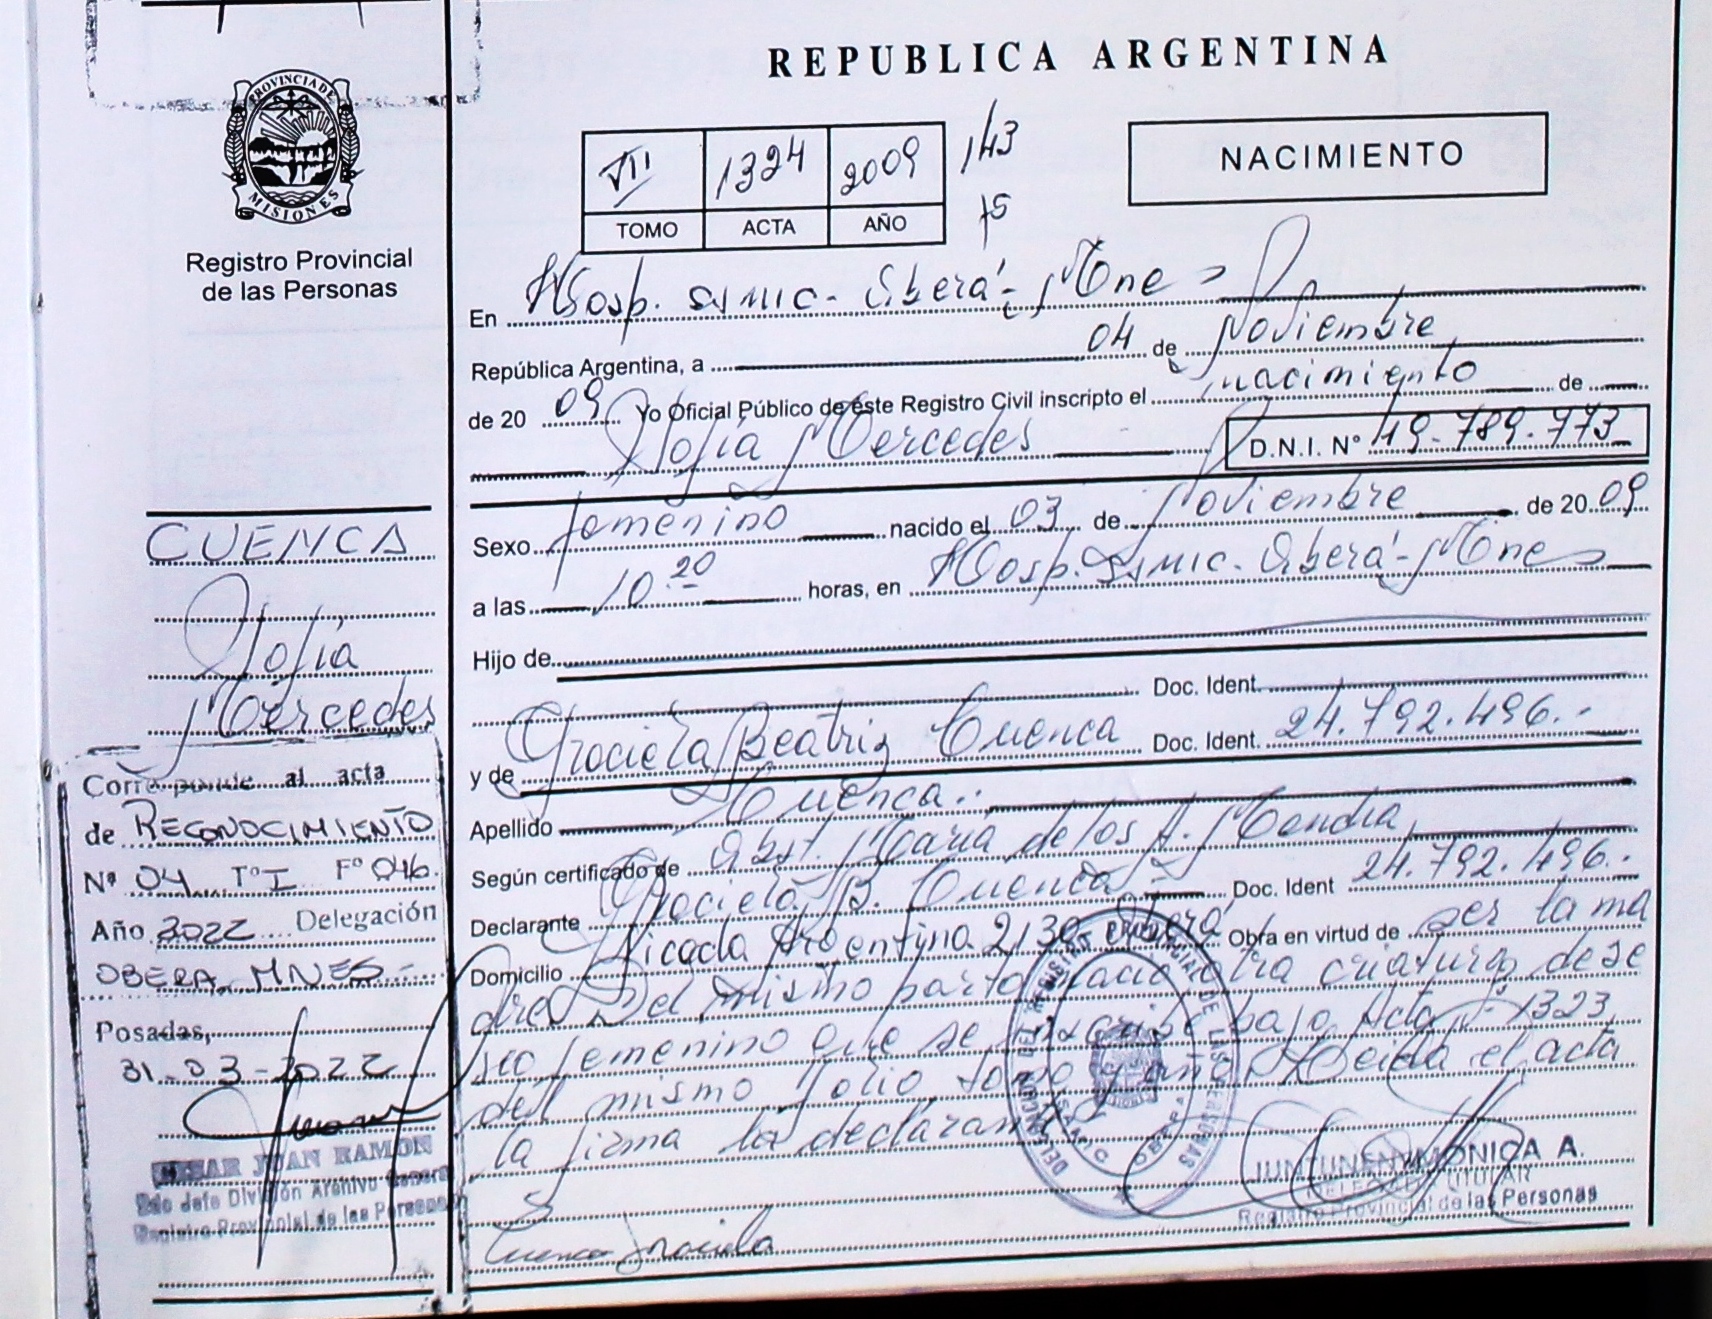 REPUBLICA ARGENTINA
PROVINCIA DE
MISIONES
Registro Provincial
de las Personas
VII 1324 2009 143
TOMO ACTA AÑO 75
NACIMIENTO
En Hosp. SAMIC - Oberá - Mnes
República Argentina, a 04 de Noviembre
de 20 09 Yo Oficial Público de este Registro Civil inscripto el nacimiento de
Sofía Mercedes D.N.I. Nº 49.789.773
Sexo femenino nacido el 03 de Noviembre de 20 09
a las 10 20 horas, en Hosp. SAMIC - Oberá - Mnes
Hijo de
Doc. Ident.
y de Graciela Beatriz Cuenca Doc. Ident. 24.792.496.-
Apellido Cuenca.
Según certificado de Obst. María de los A.
Declarante Graciela B. Cuenca Doc. Ident 24.792.496.-
Domicilio Argentina 2130 Oberá Obra en virtud de ser la ma
dre. Del mismo parto nació otra criatura de se
xo femenino que se inscribe bajo Acta Nº 1323,
del mismo folio, tomo y año. Leida el acta
la firma la declarante
Cuenca Graciela
CUENCA
Sofía
Mercedes
Corresponde al acta
de RECONOCIMIENTO
Nº 04 Tº I Fº 046.
Año 2022 Delegación
OBERA, MNES-
Posadas,
31-03-2022
CESAR JUAN RAMON
Sdo Jefe División Archivo General
Registro Provincial de las Personas
JUNTUNEN MÓNICA A.
DELEGADA TITULAR
Registro Provincial de las Personas